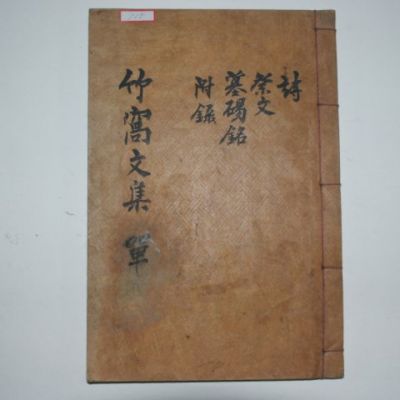 詩
祭文
墓碣銘
附錄
竹窩文集 單